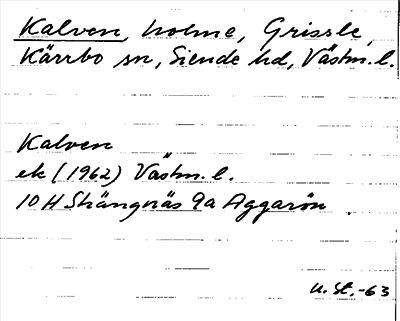 Kalven, holme, Grissle,
Kärrbo sn, Siende hd, Västm. l.
Kalven
ek (1962) Västm. l.
10 H Strängnäs 9a Aggarön
U. St. -63